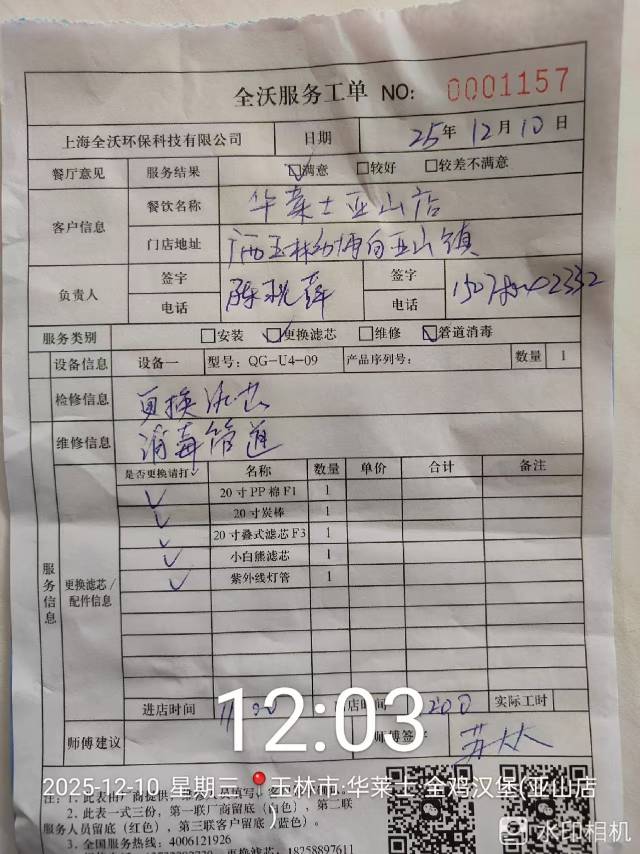 全沃服务工单 NO: 0001157
上海全沃环保科技有限公司 日期 25年12月10日
餐厅意见 服务结果 满意 较好 较差不满意
客户信息 餐饮名称 华莱士亚山店
门店地址 广西玉林幼博白亚山镇
负责人 签字 签字
电话 电话
服务类别 安装 更换滤芯 维修 管道消毒
设备信息 设备一 型号: QG-U4-09 产品序列号: 数量 1
检修信息 更换滤芯
维修信息 消毒管道
服务信息 更换滤芯/配件信息 是否更换请打✓ 名称 数量 单价 合计 备注
✓ 20寸PP棉F1 1
✓ 20寸炭棒 1
✓ 20寸叠式滤芯F3 1
✓ 小白熊滤芯 1
✓ 紫外线灯管 1
进店时间 店时间 实际工时
师傅建议 师傅签字
12:03
2025-12-10 星期三 玉林市·华莱士·全鸡汉堡(亚山店)
注:1.此表由厂商提供,
2.此表一式三份,第一联厂商留底(白色),第二联
服务人员留底(红色),第三联客户留底(蓝色)。
3.全国服务热线: 4006121926
更换滤芯: 18258897611
水印相机